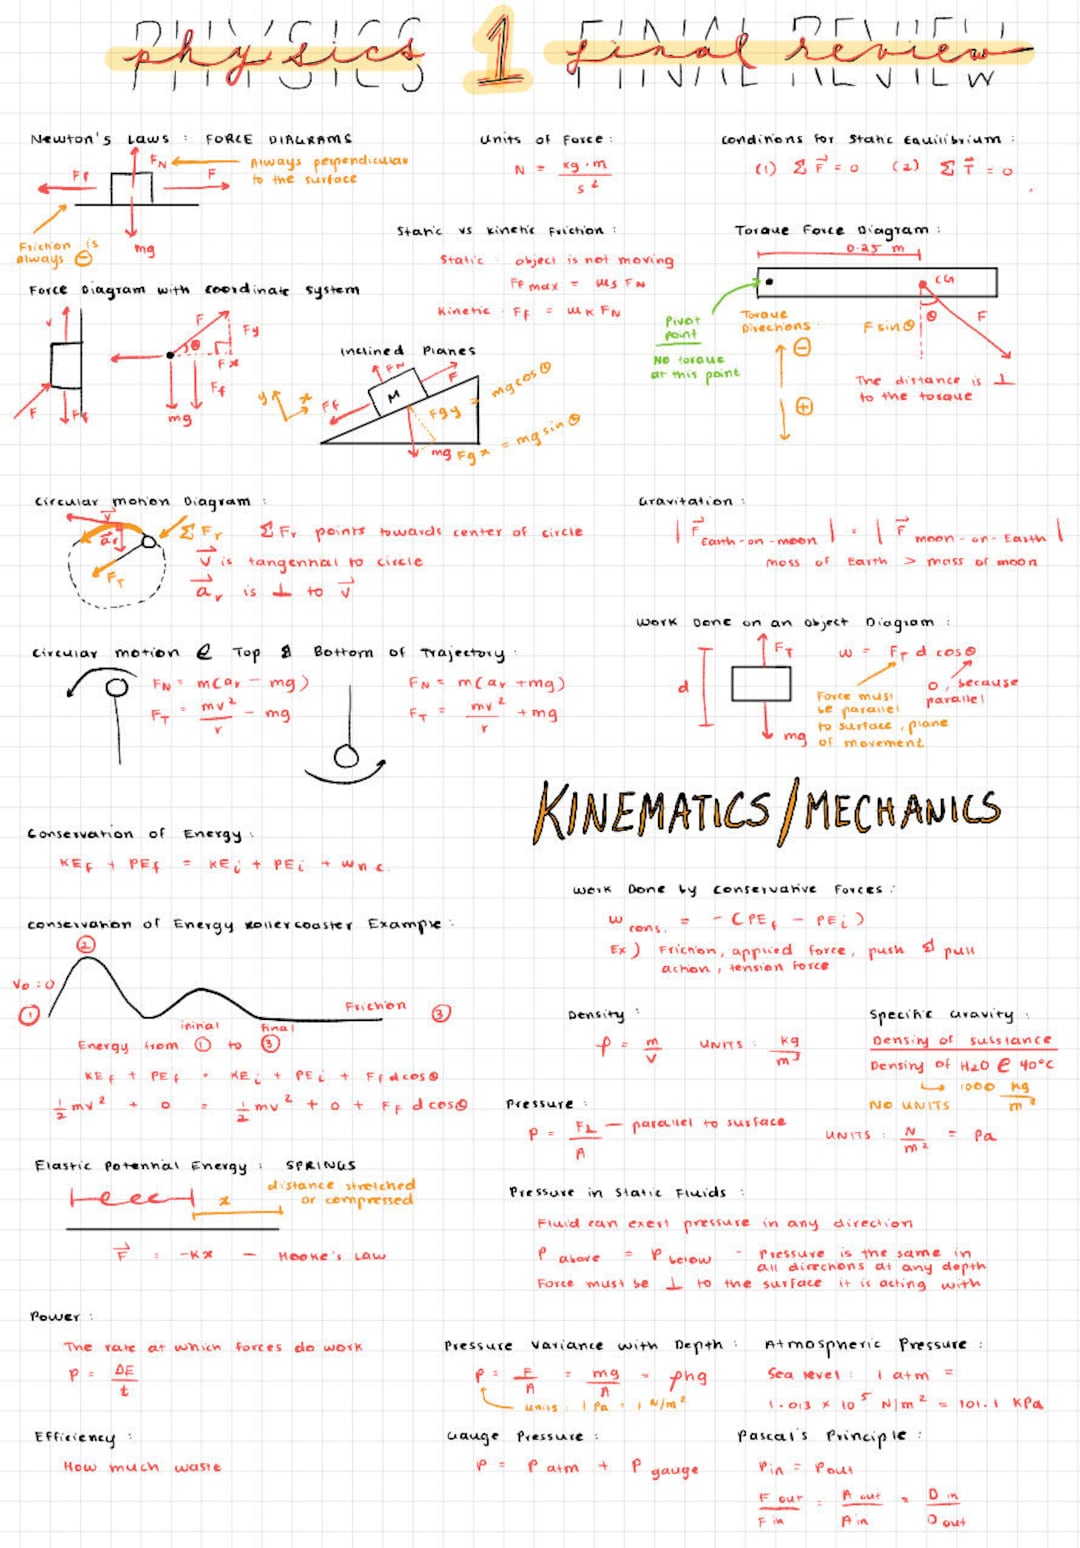 PHYSICS 1 FINAL REVIEW
physics 1 final review
Newton's Laws : FORCE DIAGRAMS
FN
Always perpendicular
to the surface
Ff
F
mg
Friction is
always ⊖
Units of Force :
N = kg · m / s²
Conditions for Static Equilibrium :
(1) Σ F⃗ = 0 (2) Σ T⃗ = 0
Static vs Kinetic Friction :
Static : object is not moving
Ff max = μs FN
Kinetic : Ff = μk FN
Torque Force Diagram :
0.25 m
CG
Pivot
point
No torque
at this point
Torque
Directions :
⊖
⊕
F sin θ
θ
F
The distance is ⊥
to the torque
Force Diagram with coordinate system
v
F
Ff
F
Fy
θ
Fx
Ff
mg
Inclined Planes
y
x
FN
F
Ff
M
Fgy = mg cos θ
mg
Fgx = mg sin θ
Circular motion Diagram :
v⃗
a⃗r
FT
Σ Fr
Σ Fr points towards center of circle
v⃗ is tangential to circle
a⃗r is ⊥ to v⃗
Gravitation :
| F⃗ Earth-on-moon | = | F⃗ moon-on-Earth |
mass of Earth > mass of moon
Circular motion @ Top & Bottom of Trajectory :
FN = m(ar - mg)
FT = mv² / r - mg
FN = m(ar + mg)
FT = mv² / r + mg
Work Done on an object Diagram :
d
FT
mg
w = FT d cos θ
Force must
be parallel
to surface, plane
of movement
0, because
parallel
KINEMATICS/MECHANICS
Conservation of Energy :
KEf + PEf = KEi + PEi + Wn.c.
Work Done by Conservative Forces :
W cons. = - (PEf - PEi)
Ex) Friction, applied force, push & pull
action, tension force
Conservation of Energy Rollercoaster Example :
②
V0 = 0
①
Friction
③
initial
final
Energy from ① to ③
KEf + PEf = KEi + PEi + Ff d cos θ
½ mv² + 0 = ½ mv² + 0 + Ff d cos θ
Density :
ρ = m / V
UNITS : kg / m³
Specific Gravity :
Density of substance
Density of H2O @ 40°C
1000 kg / m³
NO UNITS
Pressure :
P = F⊥ / A
parallel to surface
UNITS : N / m² = Pa
Elastic Potential Energy : SPRINGS
x
distance stretched
or compressed
F⃗ = -Kx - Hooke's Law
Pressure in Static Fluids :
Fluid can exert pressure in any direction
P above = P below - Pressure is the same in
all directions at any depth
Force must be ⊥ to the surface it is acting with
Power :
The rate at which forces do work
P = ΔE / t
Pressure Variance with Depth :
P = F / A = mg / A = ρhg
units : 1 Pa = 1 N/m²
Atmospheric Pressure :
Sea level : 1 atm =
1.013 × 10⁵ N/m² = 101.1 KPa
Efficiency :
How much waste
Gauge Pressure :
P = P atm + P gauge
Pascal's Principle :
Pin = Pout
F out / F in = A out / A in = D in / D out